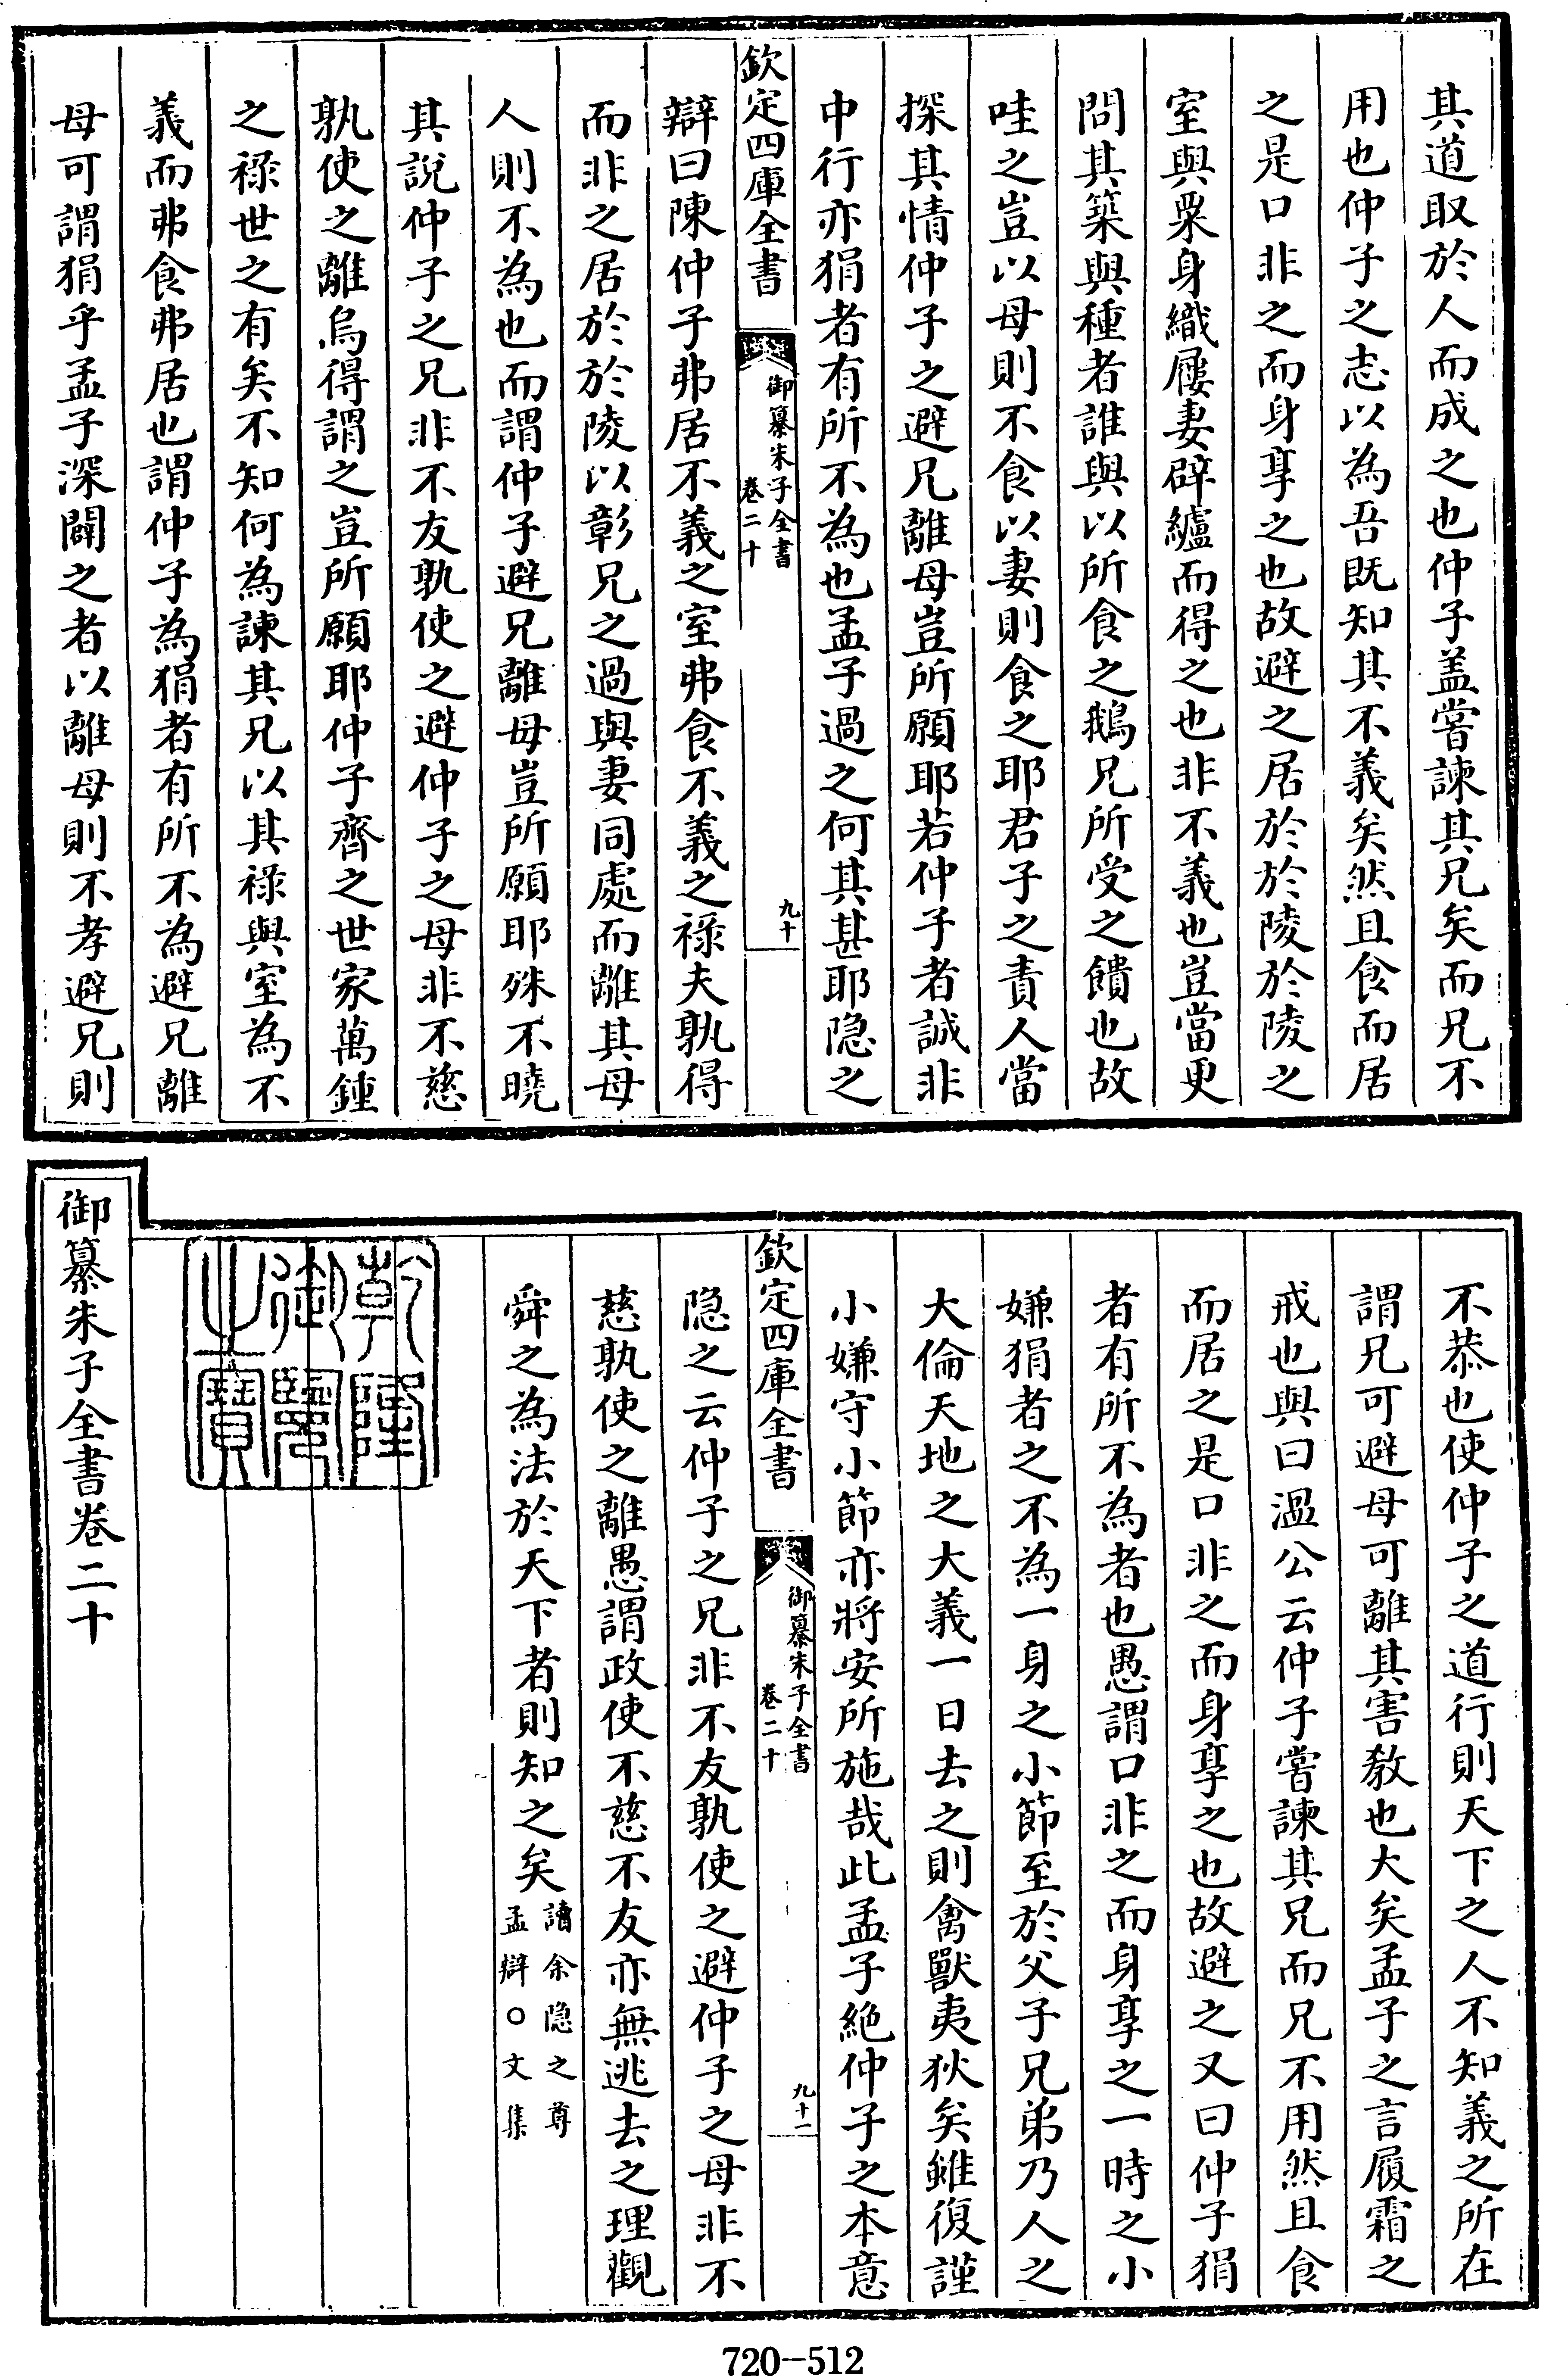 其道取於人而成之也仲子盖嘗諫其兄矣而兄不
用也仲子之志以為吾既知其不義矣然且食而居
之是口非之而身享之也故避之居於於陵於陵之
室與粟身織屨妻辟纑而得之也非不義也豈當更
問其築與種者誰與以所食之鵝兄所受之饋也故
哇之豈以母則不食以妻則食之耶君子之責人當
探其情仲子之避兄離母豈所願耶若仲子者誠非
中行亦狷者有所不為也孟子過之何其甚耶隐之
欽定四庫全書
御纂朱子全書
卷二十
九十
辯曰陳仲子弗居不義之室弗食不義之禄夫孰得
而非之居於於陵以彰兄之過與妻同處而離其母
人則不為也而謂仲子避兄離母豈所願耶殊不曉
其說仲子之兄非不友孰使之避仲子之母非不慈
孰使之離烏得謂之豈所願耶仲子齊之世家萬鍾
之禄世之有矣不知何為諫其兄以其禄與室為不
義而弗食弗居也謂仲子為狷者有所不為避兄離
母可謂狷乎孟子深闢之者以離母則不孝避兄則
不恭也使仲子之道行則天下之人不知義之所在
謂兄可避母可離其害教也大矣孟子之言履霜之
戒也與曰溫公云仲子嘗諫其兄而兄不用然且食
而居之是口非之而身享之也故避之又曰仲子狷
者有所不為者也愚謂口非之而身享之一時之小
嫌狷者之不為一身之小節至於父子兄弟乃人之
大倫天地之大義一日去之則禽獸夷狄矣雖復謹
小嫌守小節亦將安所施哉此孟子絶仲子之本意
欽定四庫全書
御纂朱子全書
卷二十
九十一
隐之云仲子之兄非不友孰使之避仲子之母非不
慈孰使之離愚謂政使不慈不友亦無逃去之理觀
舜之為法於天下者則知之矣讀余隐之尊
孟辯○文集
乾隆
御覽
之寶
御纂朱子全書卷二十
720-512